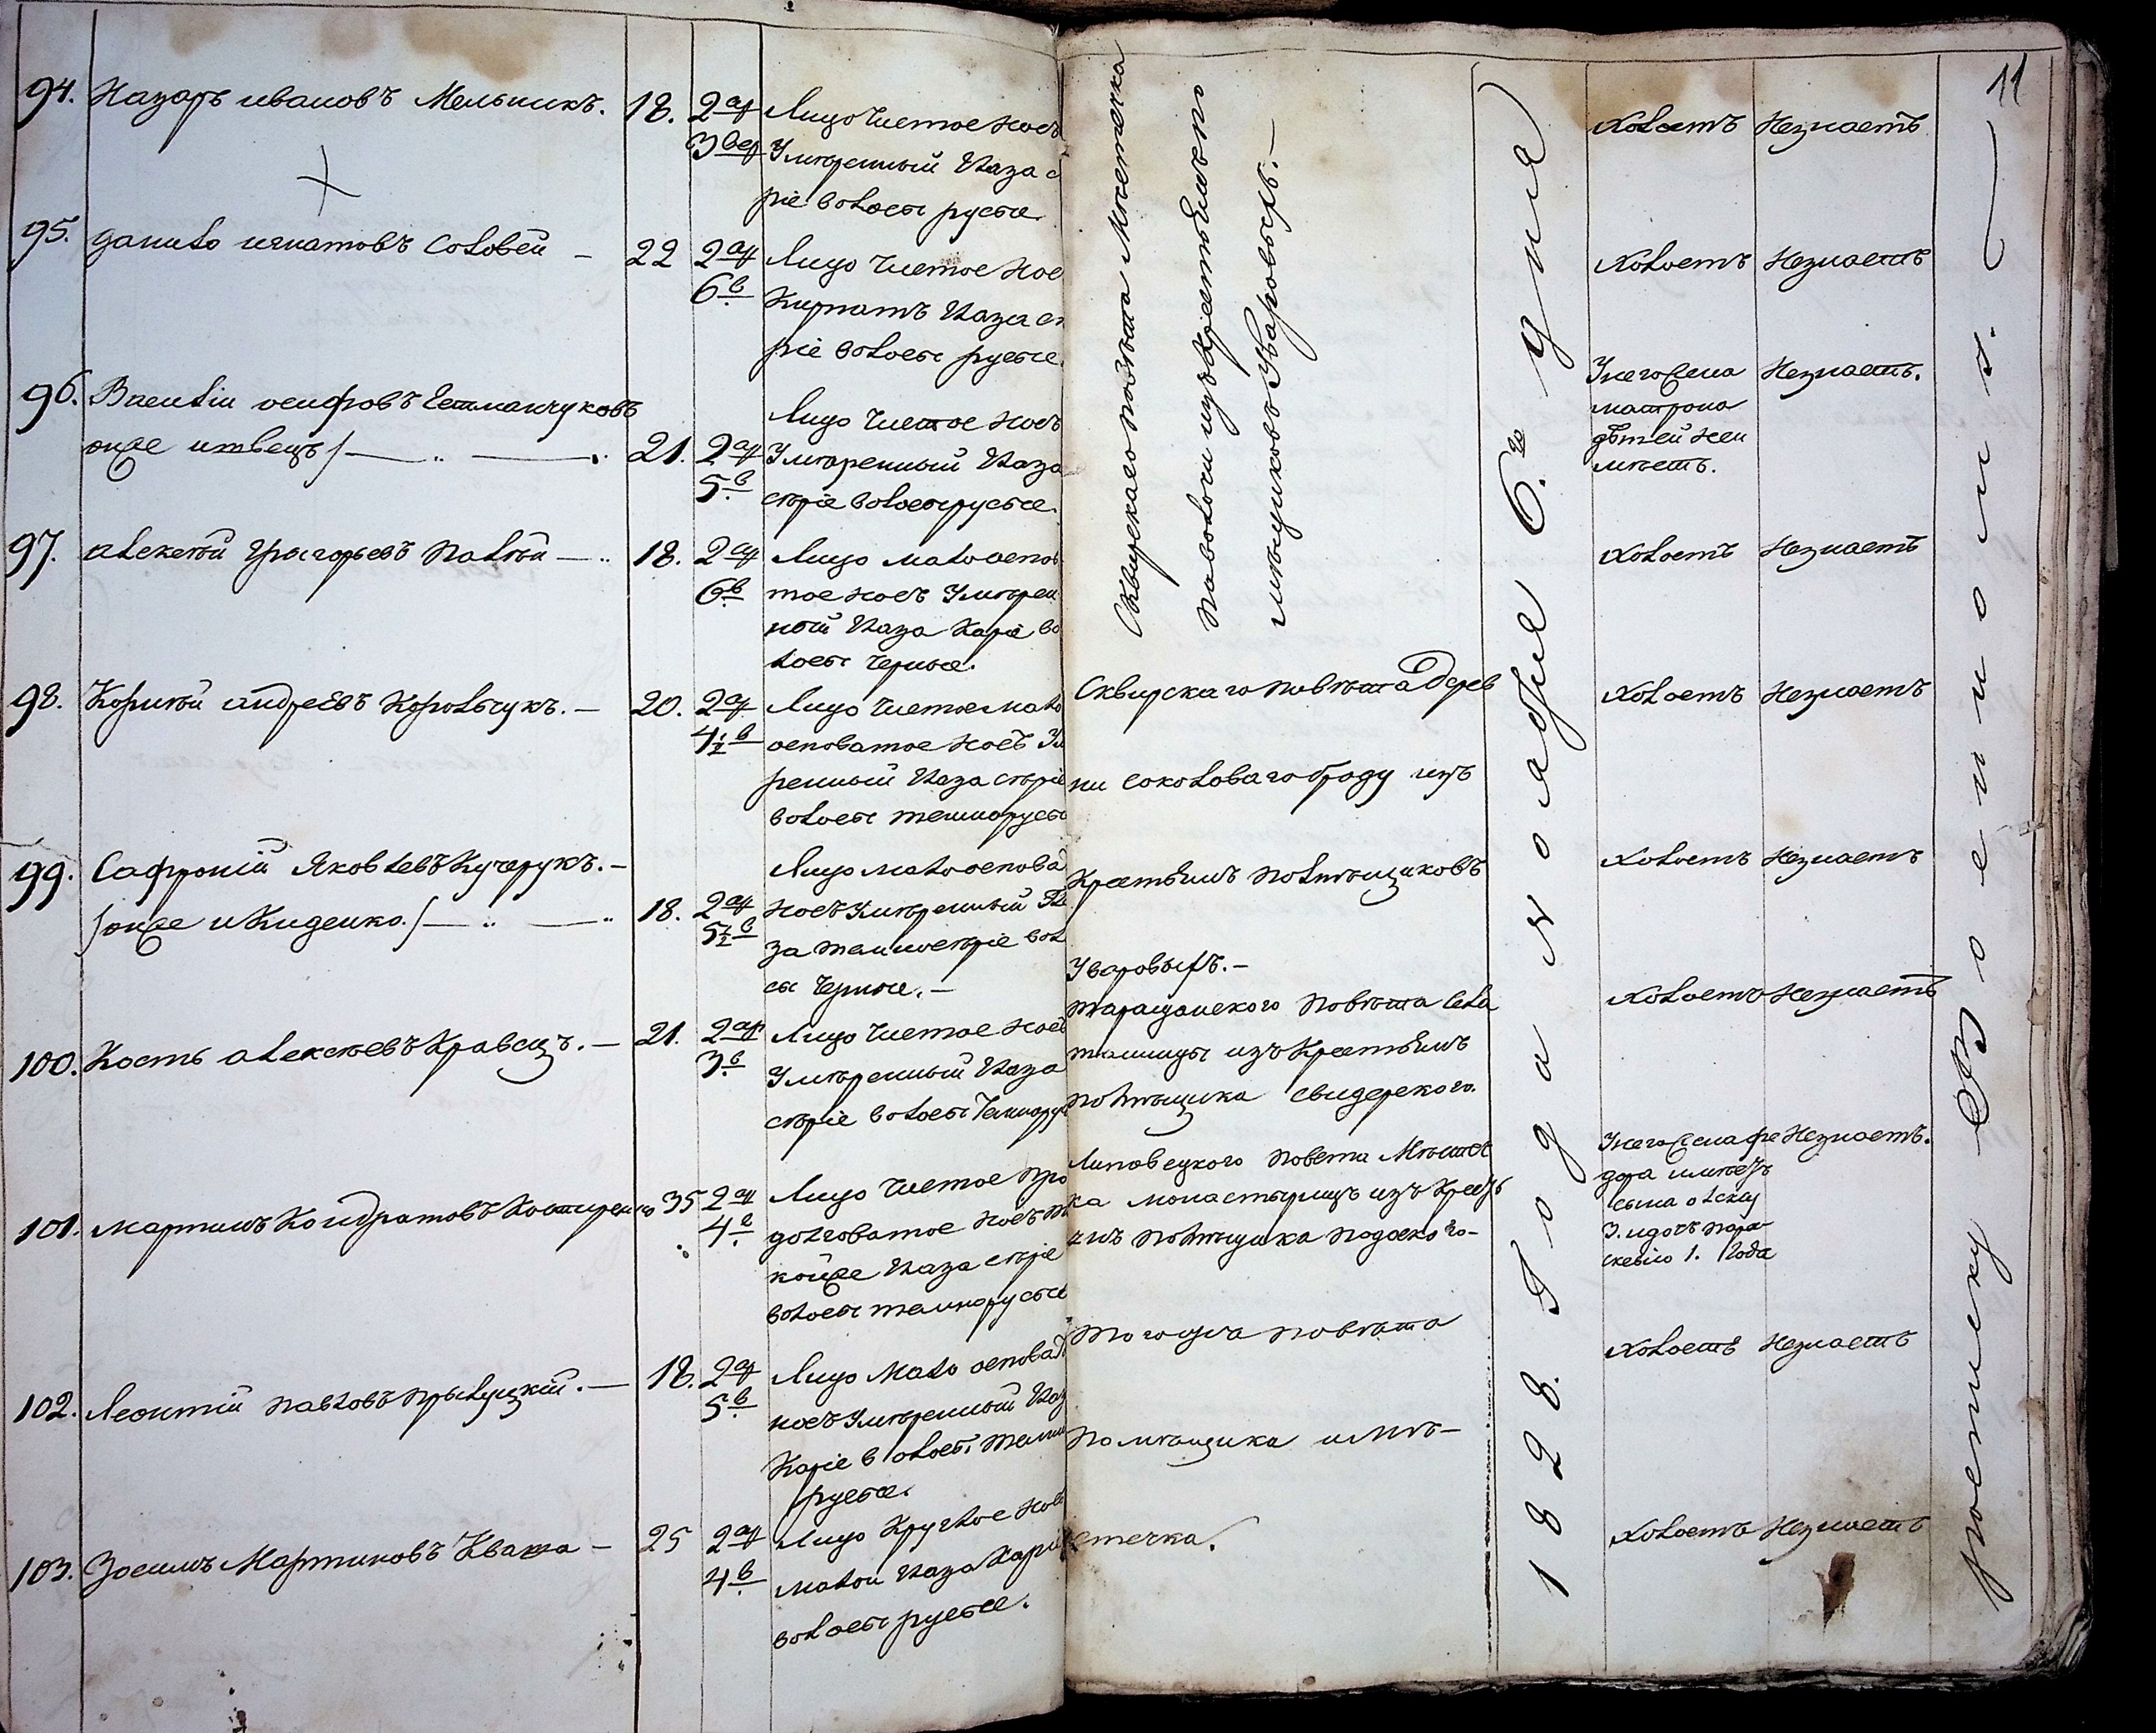 11
94. Назаръ ивановъ Мельникъ. 18. 2 ар 3 вер
Лицо чистое носъ
Умѣренный глаза с
ріе волосы русые
холостъ Незнаетъ
95. данило игнатовъ Соловей – 22 2 ар 6 в
Лицо чистое нос
Кирпатъ глаза сѣ
ріе волосы русые.
холостъ Незнаетъ
96. Василій осифовъ Гетманчуковъ
онже и швецъ / 21. 2 ар 5. в
Лицо чистое носъ
Умѣренный глаза
сѣріе волосы русые.
Унего жена
матрона
дѣтей неи
мѣетъ.
Незнаетъ.
97. алексѣй Григорьевъ палѣй 18. 2 ар 6 в
Лицо мало оспова
тое носъ Умѣрен
ной глаза Каріе во
лосы черные.
холостъ Незнаетъ
Сквирскаго повѣта Мѣстечка
паволочи изъ Крестьянъ по
мѣщиковъ Уваровыхъ. –
98. Корнѣй андреевъ Корольчукъ. – 20. 2 ар. 4½ в
Лицо чистое мало
осповатое носъ Умѣ
ренный глаза сѣріе
волосы темнорусы
холостъ Незнаетъ
99. Сафроній Яковлевъ Кучерукъ. –
/ онже и Киденко. / 18. 2 ар 5½ в
Лицо мало оспова
носъ Умѣренный гла
за темносѣріе воло
сы черные. –
холостъ Незнаетъ
Сквирскаго повѣта Дерев
ни соколоваго броду изъ
Крестьянъ помѣщиковъ
Уваровыхъ. –
100. Кость алексѣевъ Кравецъ. – 21. 2 ар 3. в
Лицо чистое носъ
Умѣренный глаза
сѣріе волосы темнору
таращанского повѣта села
ташлицы изъ Крестьянъ
помѣщика свидерского.
холостъ Незнаетъ
101. мартинъ Кондратовъ 35 2 ар 4. в
Лицо чистое про
долговатое носъ та
койже глаза сѣріе
волосы темнорусые
Липовецкого повета Мѣстеч
ка монастырищъ изъ Кресть
янъ помѣщика подоского –
Унего жена фе
дора имѣетъ
сына
3. и дочь пара
скевію 1. года
Незнаетъ.
102. Леонтій павловъ прылуцкій. – 18. 2 ар 5. в
Лицо мало оспова
носъ Умѣренный глаз
Каріе волосы темно
русые.
холостъ Незнаетъ
103. Зосимъ Мартиновъ Кваша – 25 2 ар 4. в
Лицо круглое нос
малой глаза Каріе
волосы русые.
холостъ Незнаетъ
тогожъ повѣта
помѣщика и мѣ –
стечка.
1828. Года ноября 6. го дня
Военному